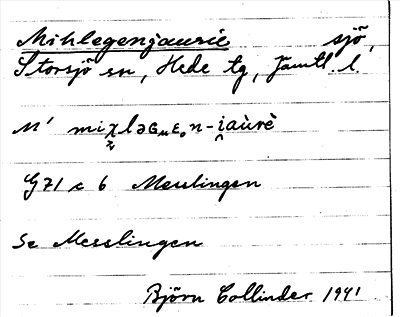 Mihlegenjaurie sjö,
Storsjö sn, Hede tg, Jämtl. l.
M'
G71 c 6 Messlingen
Se Messlingen
Björn Collinder 1941